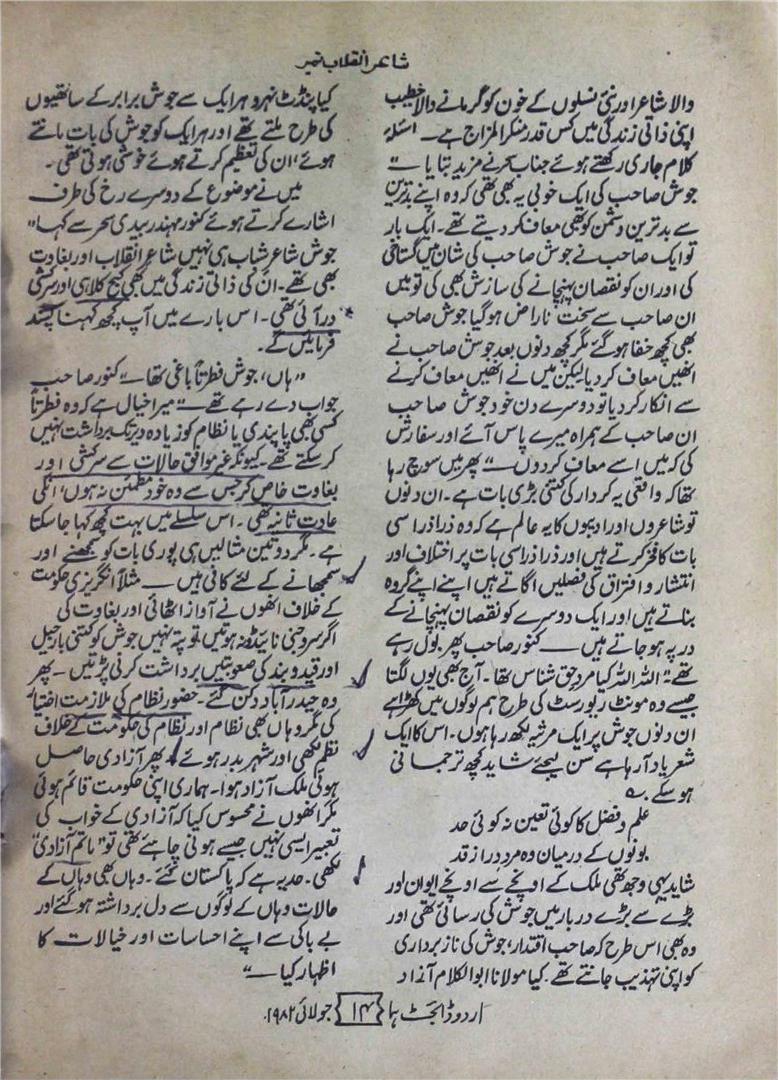 شاعر انقلاب نمبر
والا شاعر اور نئی نسلوں کے خون کو گرمانے والا خطیب
اپنی ذاتی زندگی میں کس قدر منکر المزاج ہے۔ اسئلہ
کلام جاری رکھتے ہوئے جناب سحر نے مزید بتایا —"
جوش صاحب کی ایک خوبی یہ بھی تھی کہ وہ اپنے بدترین
سے بدترین دشمن کو بھی معاف کر دیتے تھے۔ ایک بار
تو ایک صاحب نے جوش صاحب کی شان میں گستاخی
کی اور ان کو نقصان پہنچانے کی سازش بھی کی تو میں
ان صاحب سے سخت ناراض ہو گیا جوش صاحب
بھی کچھ خفا ہو گئے مگر کچھ دنوں بعد جوش صاحب نے
انھیں معاف کر دیا لیکن میں نے انھیں معاف کرنے
سے انکار کر دیا تو دوسرے دن خود جوش صاحب
ان صاحب کے ہمراہ میرے پاس آئے اور سفارش
کی کہ میں اسے معاف کر دوں —" پھر میں سوچ رہا
تھا کہ واقعی یہ کردار کی کتنی بڑی بات ہے۔ ان دنوں
تو شاعروں اور ادیبوں کا یہ عالم ہے کہ وہ ذرا ذرا سی
بات کا فخر کرتے ہیں اور ذرا ذرا سی بات پر اختلاف اور
انتشار و افتراق کی فصلیں اگاتے ہیں اپنے اپنے گروہ
بناتے ہیں اور ایک دوسرے کو نقصان پہنچانے کے
درپہ ہو جاتے ہیں — کنور صاحب پھر بول رہے
تھے" اللہ اللہ کیا مرد حق شناس تھا۔ آج بھی یوں لگتا
جیسے وہ مونٹ ریورسٹ کی طرح ہم لوگوں میں کھڑا ہے
ان دنوں جوش پر ایک مرثیہ لکھ رہا ہوں۔ اس کا ایک
شعر یاد آ رہا ہے سن لیجئے شاید کچھ ترجمانی
ہو سکے۔ ؎
علم و فضل کا کوئی تعین نہ کوئی حد
بونوں کے درمیان وہ مرد دراز قد
شاید یہی وجہ تھی ملک کے اونچے سے اونچے ایوان اور
بڑے سے بڑے دربار میں جوش کی رسائی تھی اور
وہ بھی اس طرح کہ صاحب اقتدار، جوش کی ناز برداری
کو اپنی تہذیب جانتے تھے۔ کیا مولانا ابوالکلام آزاد
کیا پنڈت نہرو ہر ایک سے جوش برابر کے ساتھیوں
کی طرح ملتے تھے اور ہر ایک کو جوش کی بات مانتے
ہوئے، ان کی تعظیم کرتے ہوئے خوشی ہوتی تھی۔
میں نے موضوع کے دوسرے رخ کی طرف
اشارے کرتے ہوئے کنور مہندر بیدی سحر سے کہا"
جوش شاعر شباب ہی نہیں شاعر انقلاب اور بغاوت
بھی تھے۔ ان کی ذاتی زندگی میں بھی کج کلاہی اور سرکشی
در آئی تھی۔ اس بارے میں آپ کچھ کہنا پسند
فرمائیں گے۔
"ہاں، جوش فطرتاً باغی تھا —" کنور صاحب
جواب دے رہے تھے —" میرا خیال ہے کہ وہ فطرتاً
کسی بھی پابندی یا نظام کو زیادہ دیر تک برداشت نہیں
کر سکتے تھے۔ کیونکہ غیر موافق حالات سے سرکشی اور
بغاوت خاص کر جس سے وہ خود مطمئن نہ ہوں، انکی
عادت ثانیہ تھی۔ اس سلسلے میں بہت کچھ کہا جا سکتا
ہے۔ مگر دو تین مثالیں ہی پوری بات کو سمجھنے اور
سمجھانے کے لئے کافی ہیں — مثلاً انگریزی حکومت
کے خلاف انھوں نے آواز اٹھائی اور بغاوت کی
اگر سروجنی نائیڈو نہ ہوتیں تو پتہ نہیں جوش کو کتنی بار جیل
اور قید و بند کی صعوبتیں برداشت کرنی پڑتیں۔ پھر
وہ حیدرآباد دکن گئے۔ حضور نظام کی ملازمت اختیار
کی مگر وہاں بھی نظام اور نظام کی حکومت کے خلاف
نظم لکھی اور شہر بدر ہوئے۔ پھر آزادی حاصل
ہوئی ملک آزاد ہوا۔ ہماری اپنی حکومت قائم ہوئی
مگر انھوں نے محسوس کیا کہ آزادی کے خواب کی
تعبیر ایسی نہیں جیسے ہونی چاہئے تھی تو "ماتم آزادی"
لکھی۔ حد یہ ہے کہ پاکستان گئے۔ وہاں بھی وہاں کے
حالات وہاں کے لوگوں سے دل برداشتہ ہو گئے اور
بے باکی سے اپنے احساسات اور خیالات کا
اظہار کیا —"
اردو ڈائجسٹ ہما {۱۴} جولائی ۱۹۸۲ء